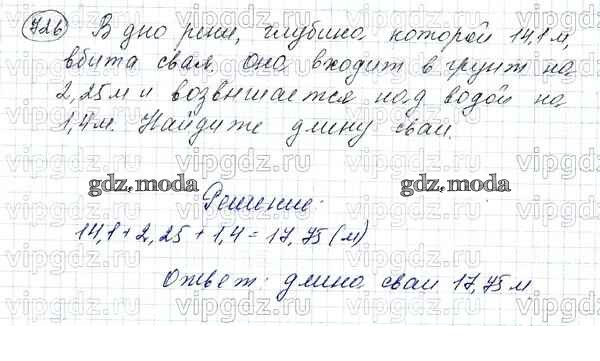 726 В дно реки, глубина которой 14,1 м,
вбита свая. Она входит в грунт на
2,25 м и возвышается над водой на
1,4 м. Найдите длину сваи.
gdz.moda gdz.moda
Решение:
14,1 + 2,25 + 1,4 = 17,75 (м)
Ответ: длина сваи 17,75 м.
vipgdz.ru